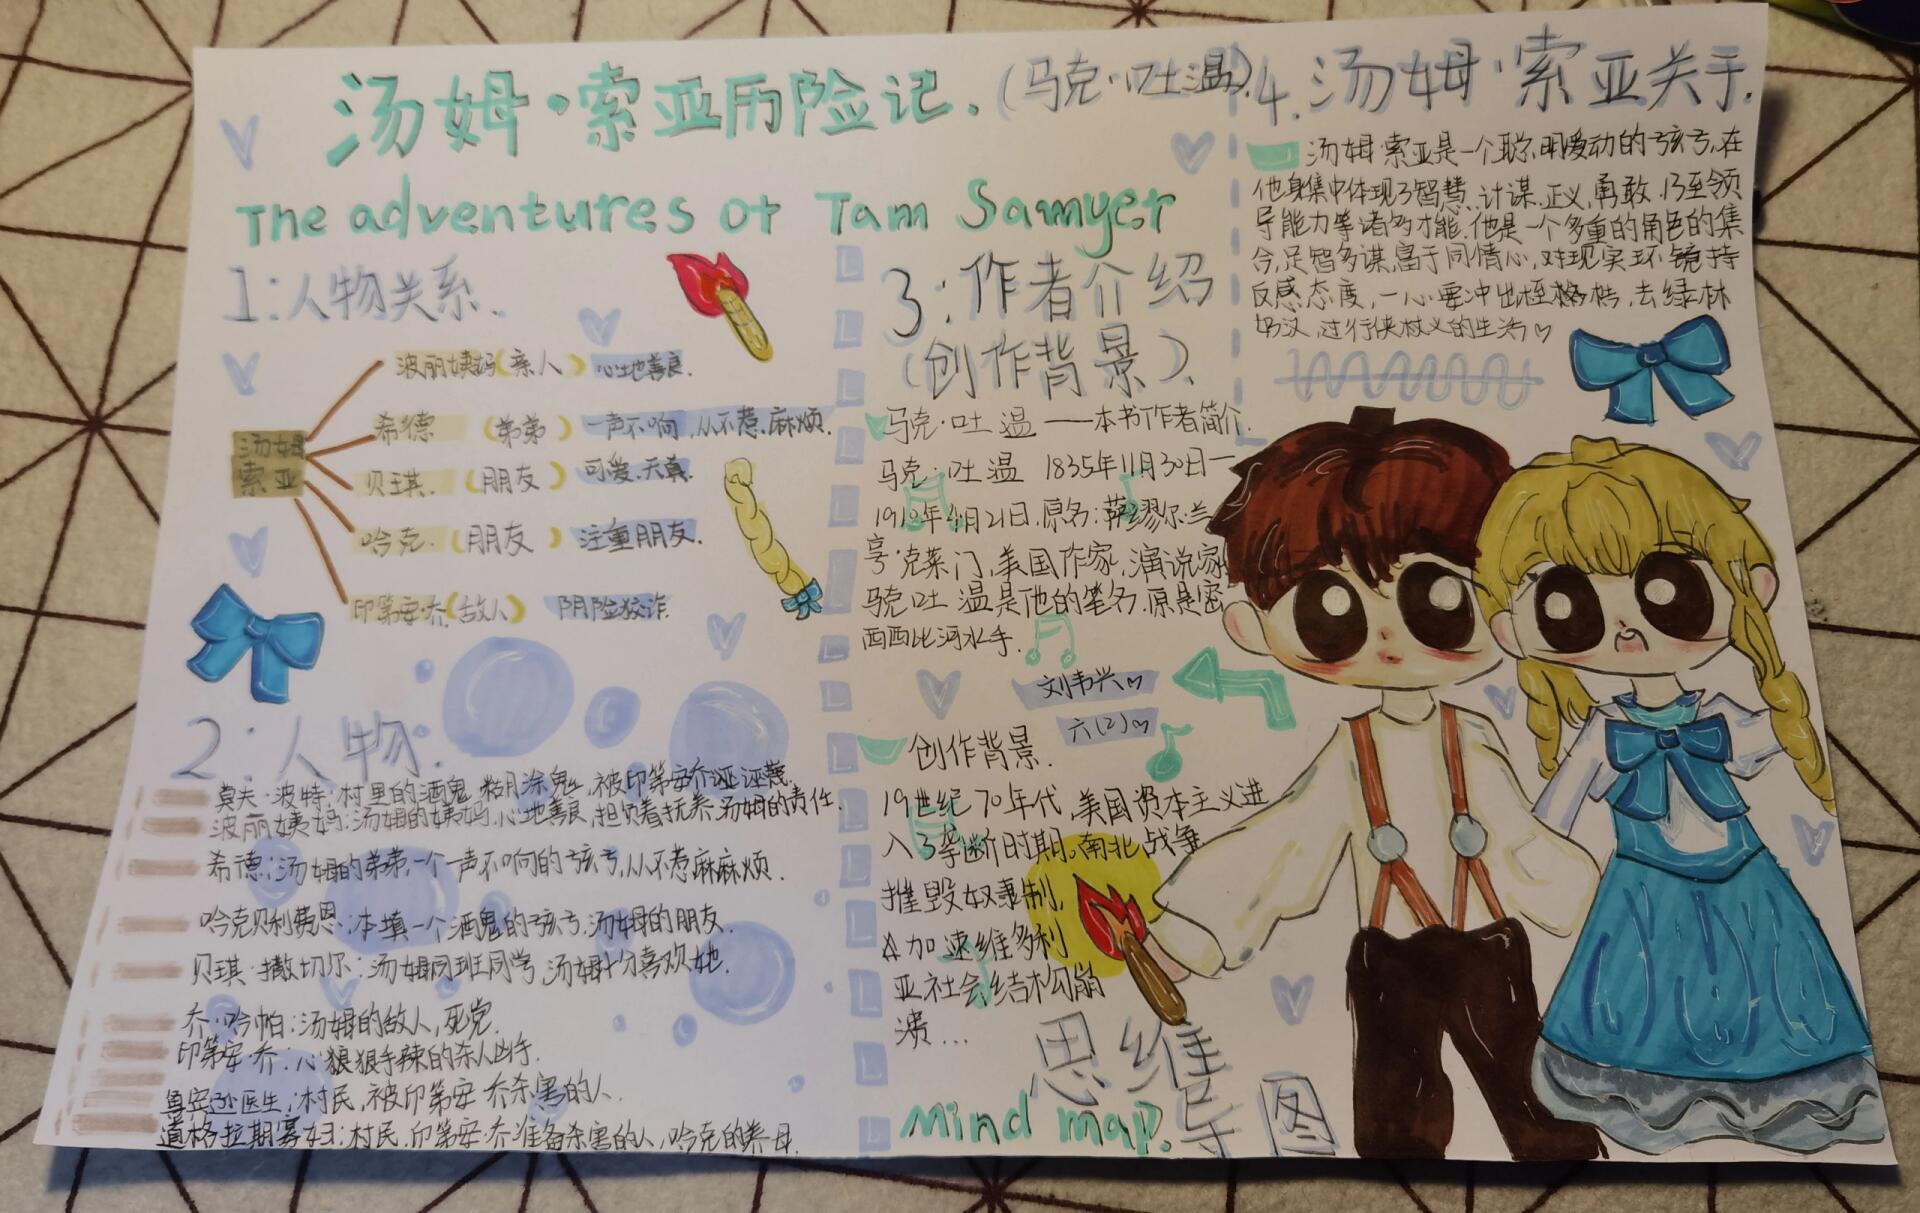 汤姆·索亚历险记.(马克·吐温).
The adventures of Tam Samyer
1:人物关系.
汤姆
索亚
波丽姨妈(亲人) 心地善良.
希德 (弟弟) 一声不响,从不惹麻烦.
贝琪. (朋友) 可爱.天真.
哈克. (朋友) 注重朋友.
印第安·乔.(敌人) 阴险狡诈.
2:人物:
莫夫·波特:村里的酒鬼 糊涂鬼,被印第安乔诬蔑.
波丽姨妈:汤姆的姨妈,心地善良,担负着抚养汤姆的责任.
希德:汤姆的弟弟,一个一声不响的孩子,从不惹麻麻烦.
哈克贝利费恩:本填一个酒鬼的孩子.汤姆的朋友.
贝琪·撒切尔:汤姆同班同学,汤姆十分喜欢她.
乔·哈帕:汤姆的敌人,死党.
印第安·乔:心狼狠手辣的杀人凶手.
鲁宾孙医生:村民,被印第安·乔杀害的人.
道格拉期寡妇:村民,印第安·乔准备杀害的人,哈克的养母.
3:作者介绍
(创作背景).
马克·吐温——本书作者简介.
马克·吐温 1835年11月30日—
1910年4月21日.原名:萨缪尔·兰
亨·克莱门,美国作家,演说家
吐温是他的笔名.原是密
西西比河水手.
刘韦兴♡
六(2)♡
创作背景.
19世纪70年代,美国资本主义进
入了垄断时期。南北战争
摧毁奴隶制,
加速维多利
亚社会结构崩
溃...
思维
导图
Mind map?
4.汤姆·索亚关于.
汤姆·索亚是一个聪明爱动的孩子,在
他身集中体现了智慧、计谋、正义,勇敢,乃至领
导能力等诸多才能.他是一个多重的角色的集
合,足智多谋,富于同情心,对现实环镜持
反感态度,一心要冲出桎格梏,去绿林
好汉,过行侠杖义的生活♡